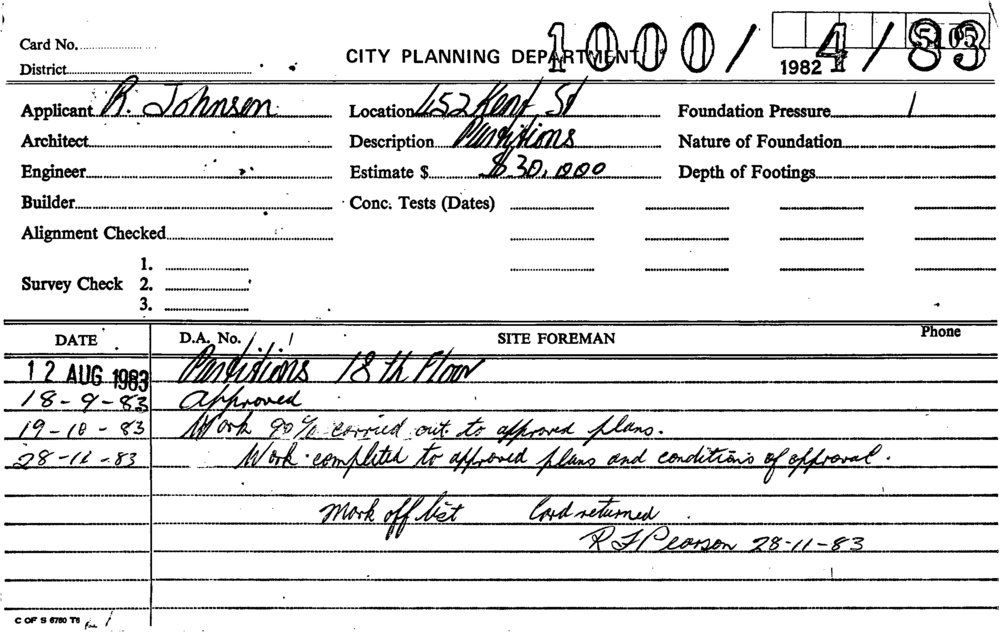 Card No.
District
CITY PLANNING DEPARTMENT
1000/ 4/83
1982
Applicant R. Johnson
Location 452 Kent St
Foundation Pressure
Architect
Description Partitions
Nature of Foundation
Engineer
Estimate $ $30,000
Depth of Footings
Builder
Conc. Tests (Dates)
Alignment Checked
1.
Survey Check 2.
3.
DATE D.A. No. SITE FOREMAN Phone
12 AUG 1983 Partitions 18th Floor
18-9-83 Approved
19-10-83 Work 90% carried out to approved plans.
28-11-83 Work completed to approved plans and conditions of approval.
Mark off list Card returned
R F Pearson 28-11-83
C OF S 6780 T6